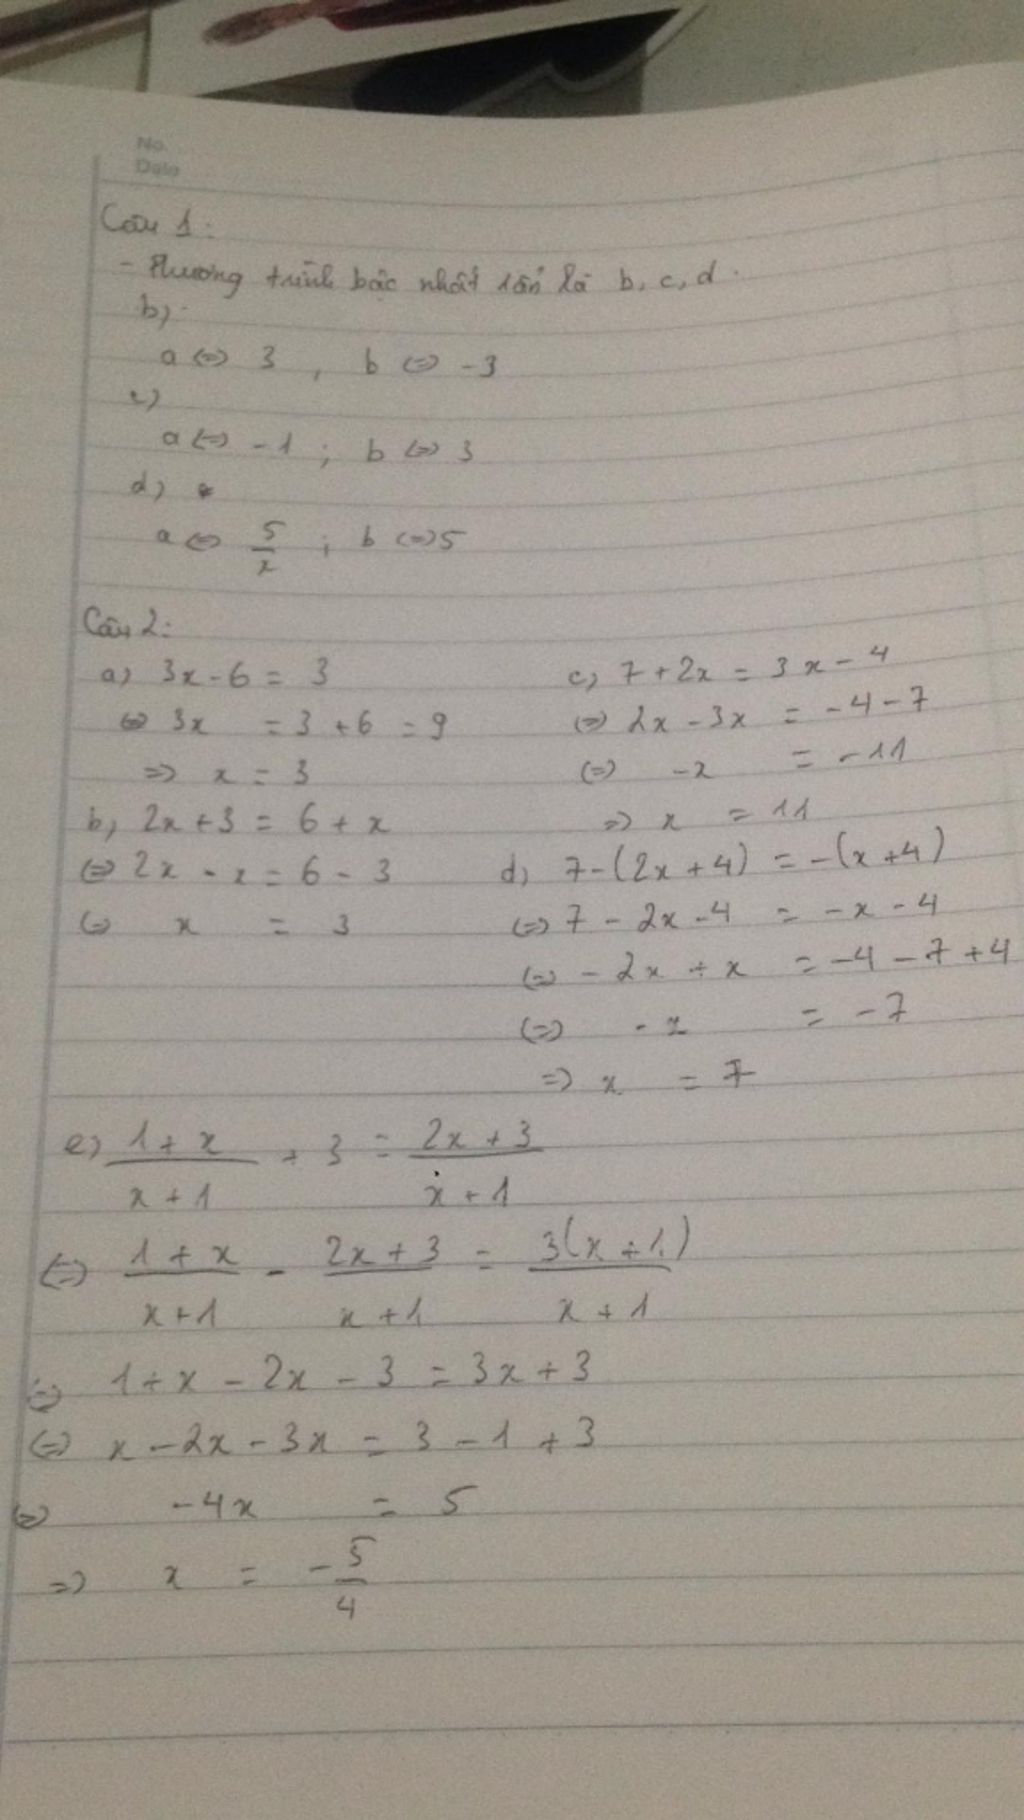 No.
Date
Câu 1:
- Phương trình bậc nhất 1 ẩn là b, c, d.
b)
a <=> 3 , b <=> -3
c)
a <=> -1 ; b <=> 3
d)
a <=> 5/x ; b <=> 5
Câu 2:
a) 3x - 6 = 3
<=> 3x = 3 + 6 = 9
=> x = 3
b) 2x + 3 = 6 + x
<=> 2x - x = 6 - 3
<=> x = 3
c) 7 + 2x = 3x - 4
<=> 2x - 3x = -4 - 7
<=> -x = -11
=> x = 11
d) 7 - (2x + 4) = -(x + 4)
<=> 7 - 2x - 4 = -x - 4
<=> - 2x + x = -4 - 7 + 4
<=> -x = -7
=> x = 7
e) (1 + x)/(x + 1) + 3 = (2x + 3)/(x + 1)
<=> (1 + x)/(x + 1) - (2x + 3)/(x + 1) = 3(x + 1)/(x + 1)
<=> 1 + x - 2x - 3 = 3x + 3
<=> x - 2x - 3x = 3 - 1 + 3
<=> -4x = 5
=> x = -5/4